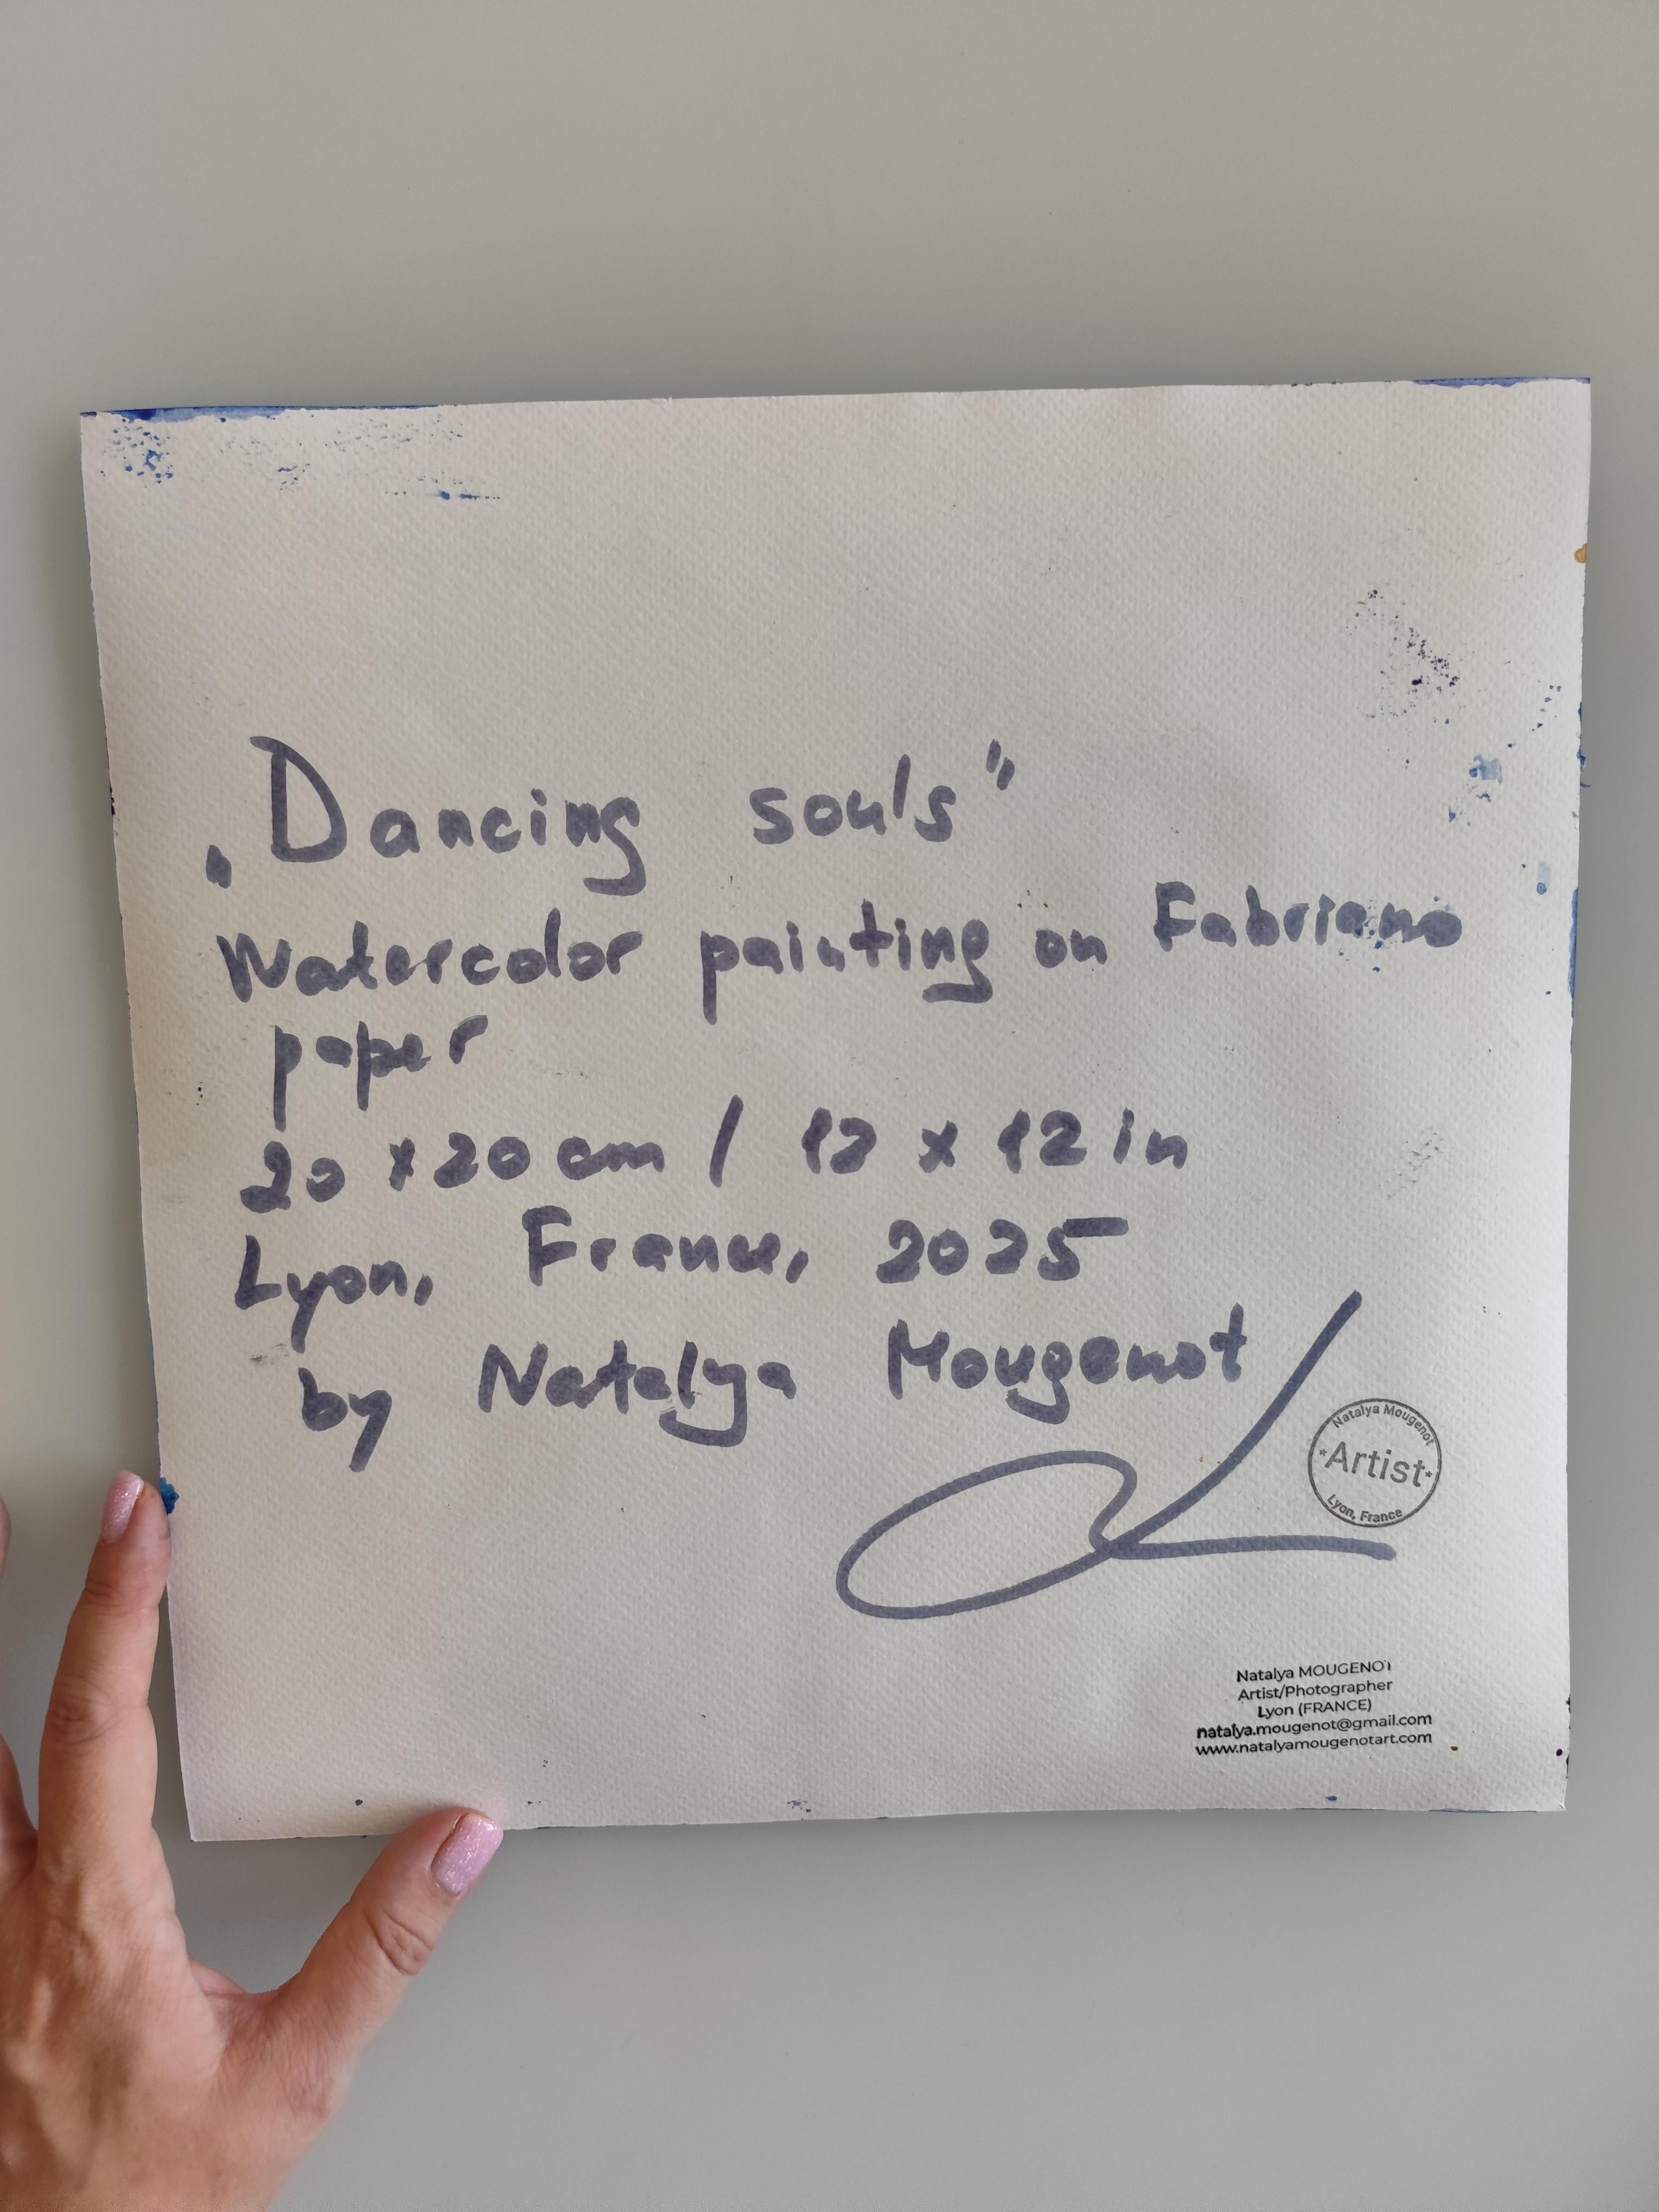 „Dancing souls"
Watercolor painting on Fabriano
paper
20 x 20 cm / 12 x 12 in
Lyon, France, 2025
by Natalya Mougenot
Natalya Mougenot
*Artist*
Lyon, France
Natalya MOUGENOT
Artist/Photographer
Lyon (FRANCE)
natalya.mougenot@gmail.com
www.natalyamougenotart.com